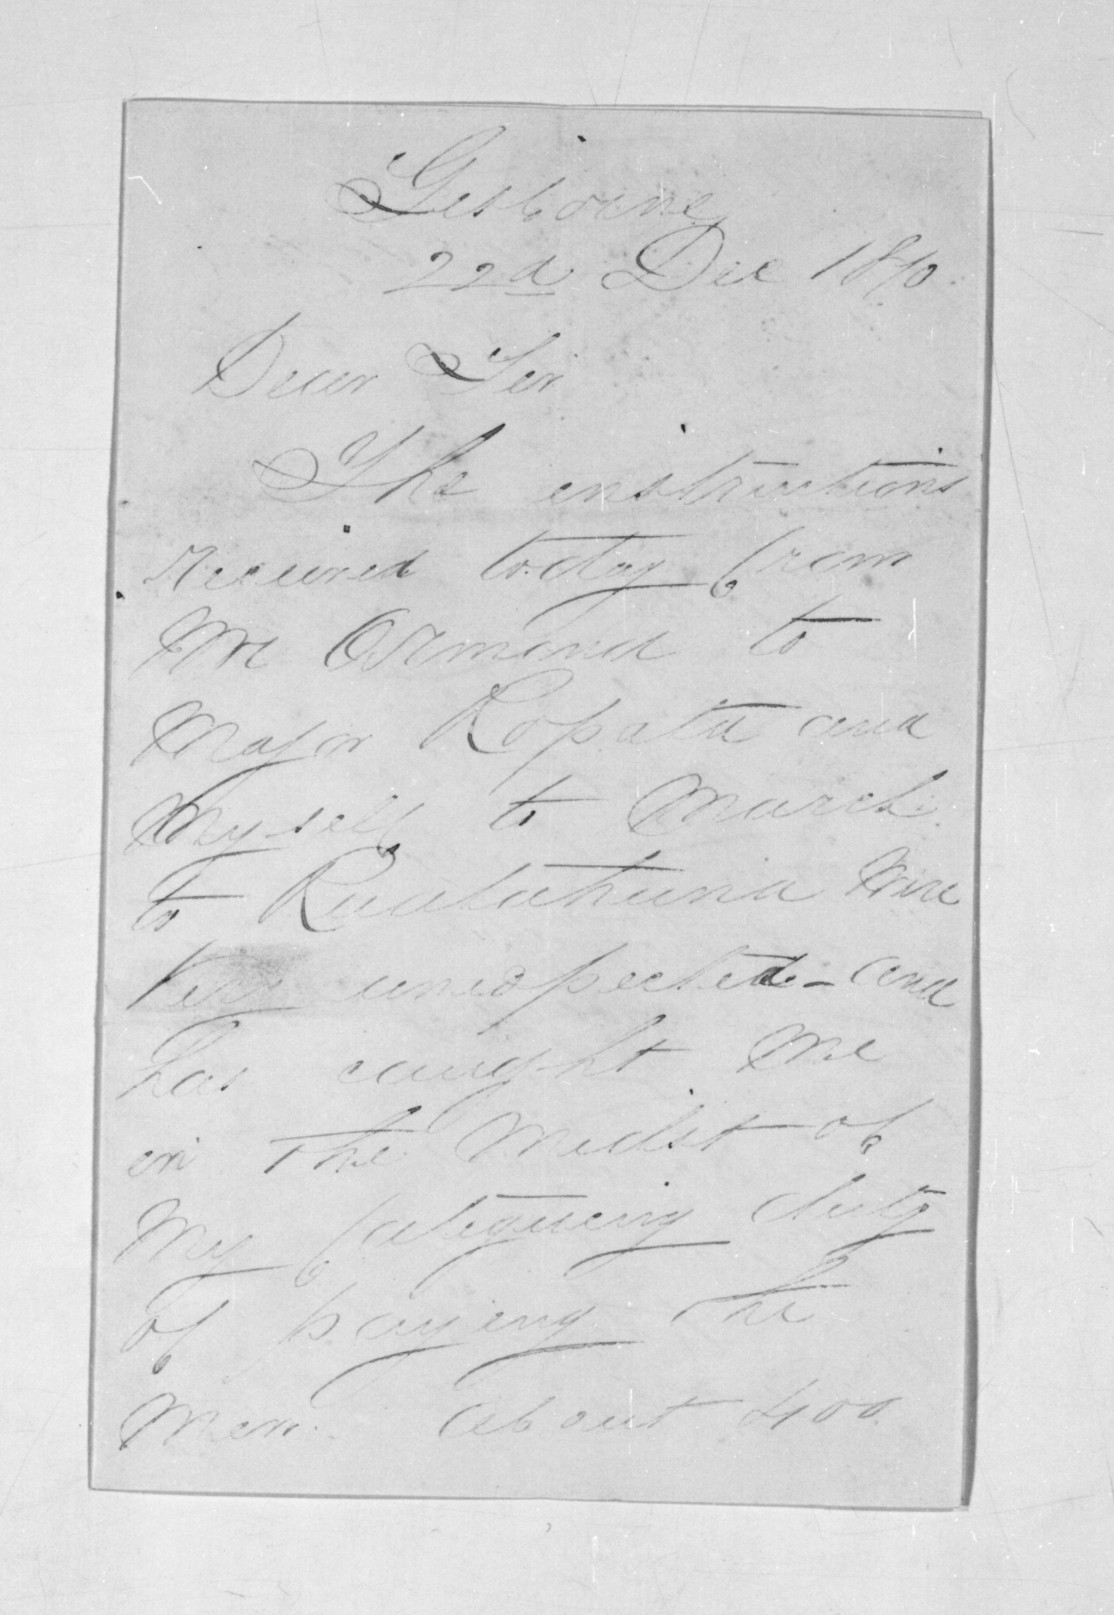 Gisborne
22d Dec 1870.
Dear Sir
The instructions
received today from
Mr Ormond to
Major Ropata and
Myself to March
to Ruatahuna
Very unexpected - and
has caught me
in the Midst of
My fatigueing duty
of paying the
Men. About 400